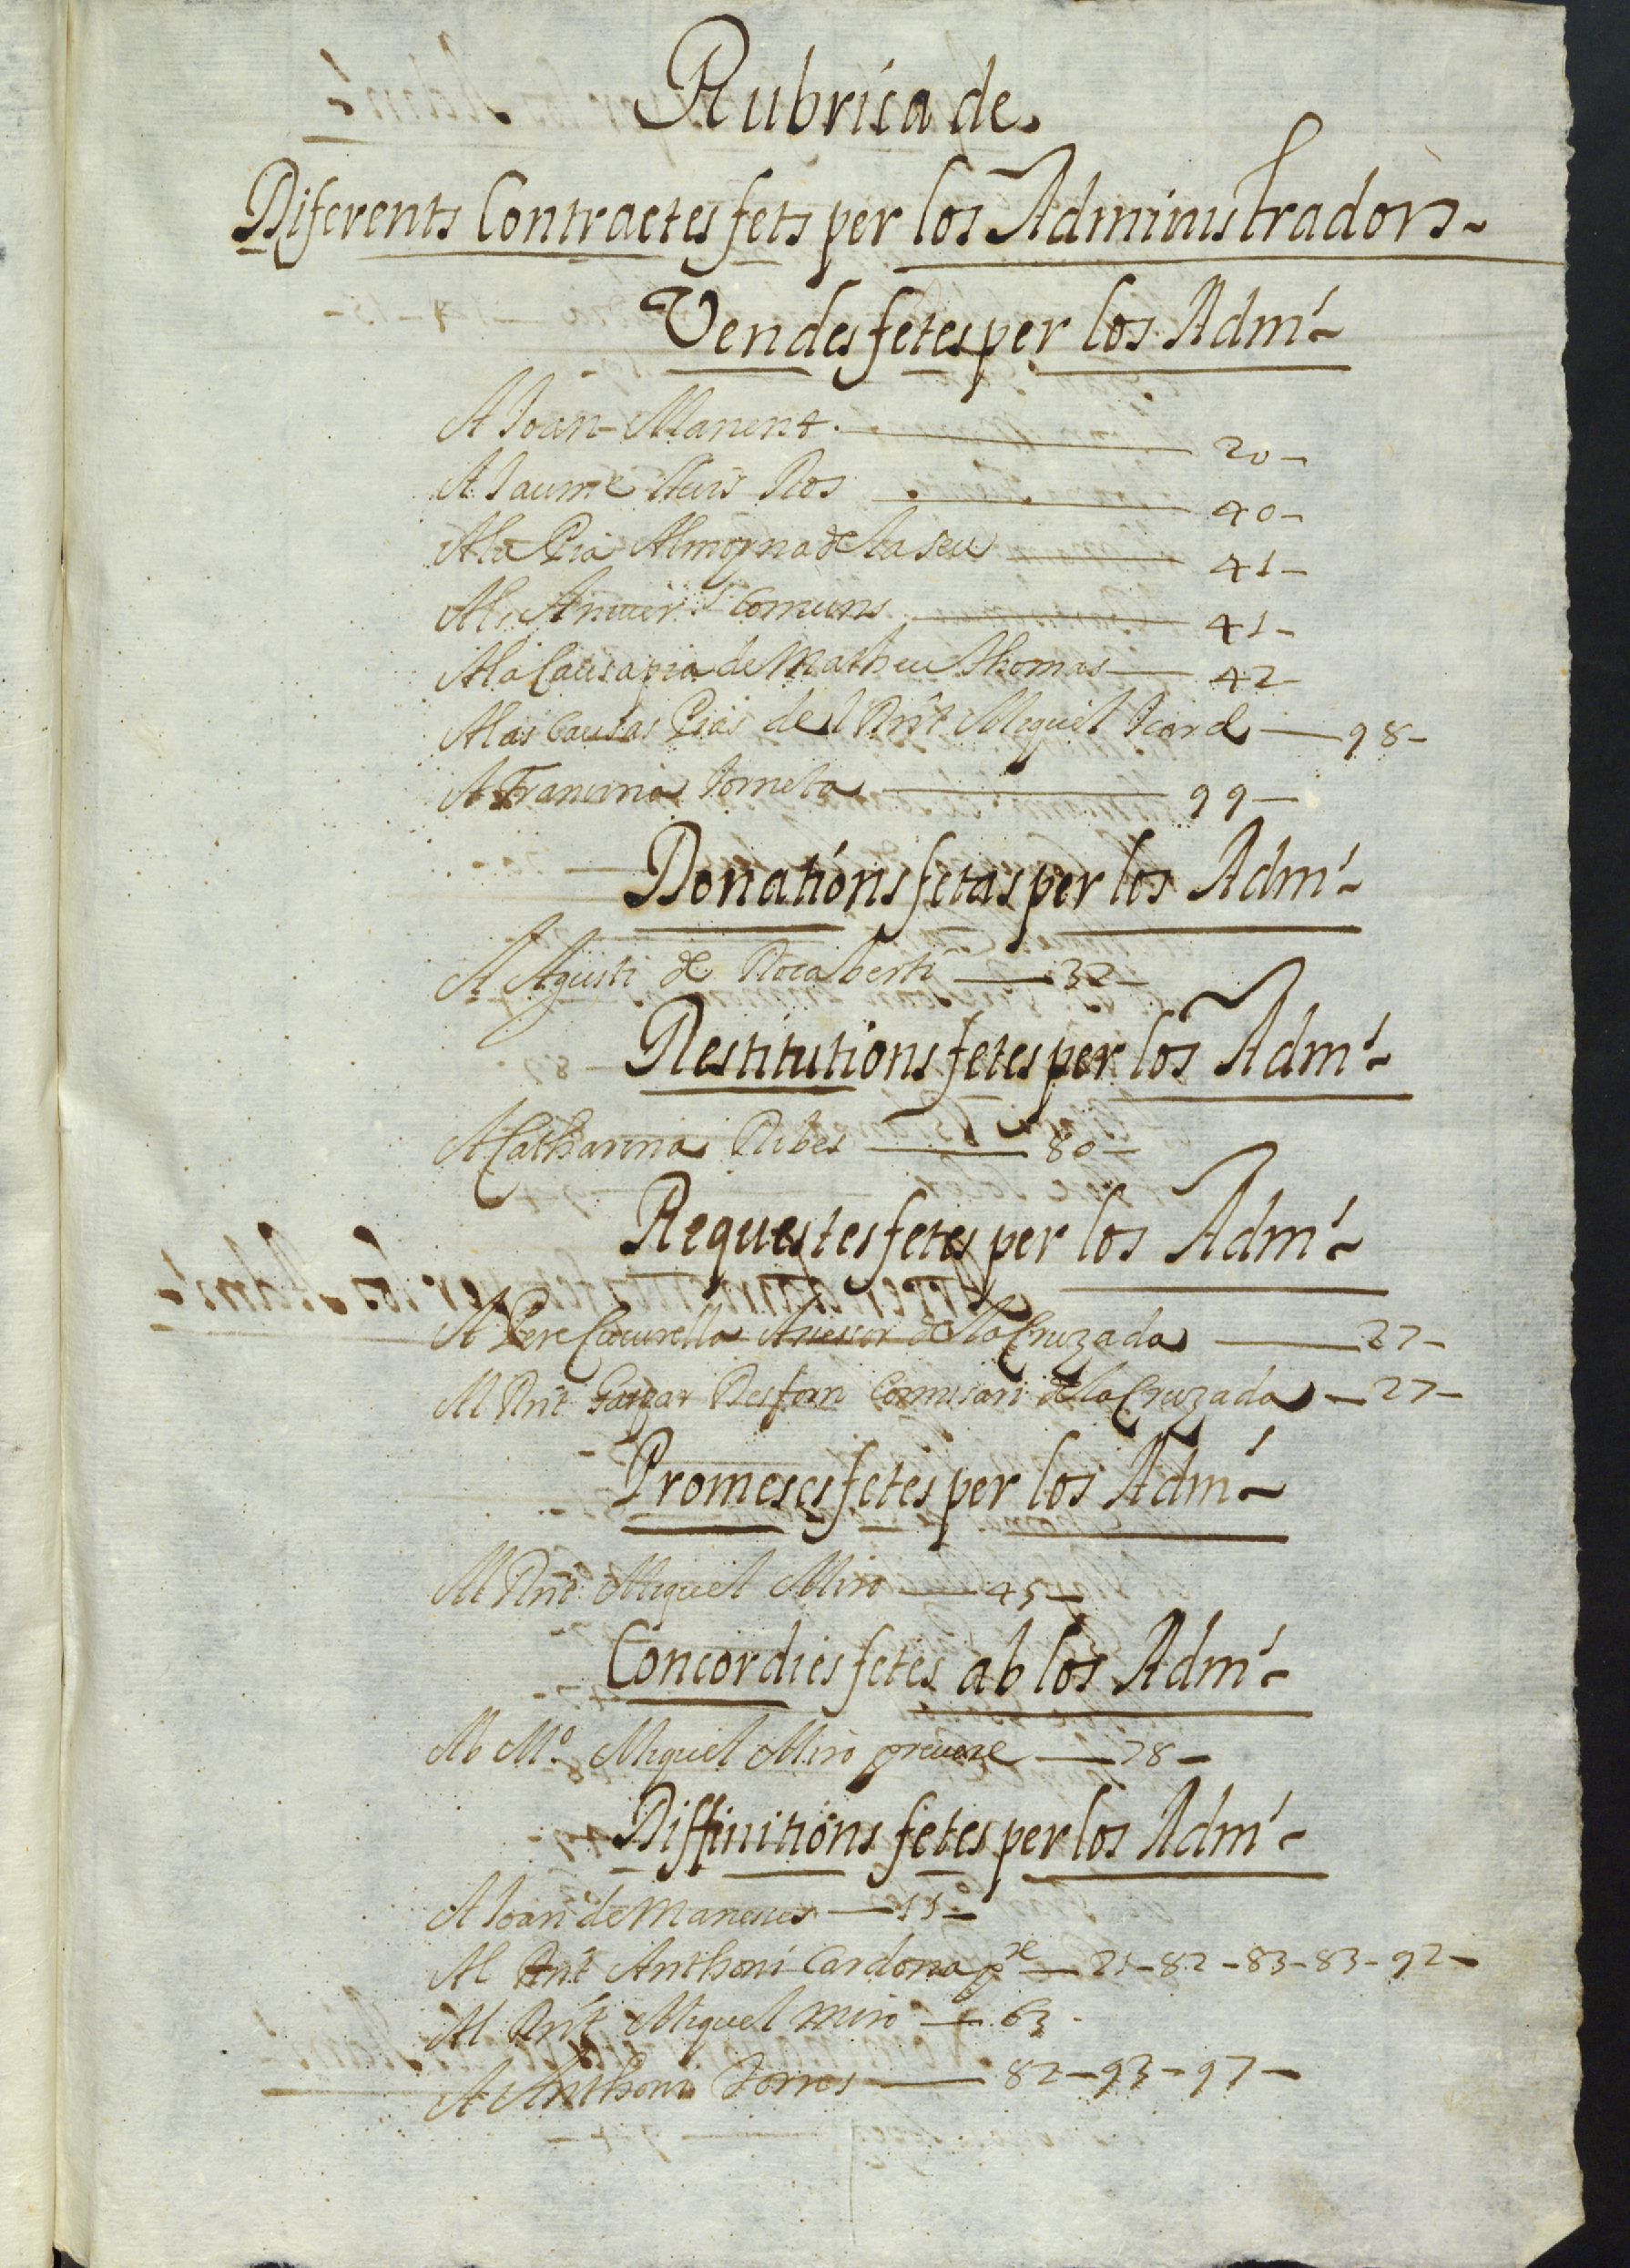 Rubrica de
Diferents Contractes fets per los Administradors
Vendes fetes per los Adm.ˢ
A Joan Manent — 20
A Jaume Lluis Ros — 40
A la Pia Almoyna de la Seu — 41
Als Anniver.ˢ Comuns — 41
A la Causa pia de Matheu Thomas — 42
A las Causas Pias del Rnt Miquel Icard — 98
A Francina Torneta — 99
Donations fetas per los Adm.ˢ
A Agusti de Rocaberti — 32
Restitutions fetes per los Adm.ˢ
A Catharina Ribes — 80
Requestes fetes per los Adm.ˢ
A Pere Cocurella Assessor de la Cruzada — 27
Al Rnt Gaspar Comisari de la Cruzada — 27
Promeses fetes per los Adm.ˢ
Al Rnt Miquel Miro — 45
Concordies fetes ab los Adm.ˢ
Ab Mº Miquel Miro prevere — 78
Diffinitions fetes per los Adm.ˢ
A Joan de Maneues — 11
Al Rnt Anthoni Cardona pre — 21-82-83-83-92
Al Rnt Miquel Miro — 63
A Anthoni Torres — 82-93-97